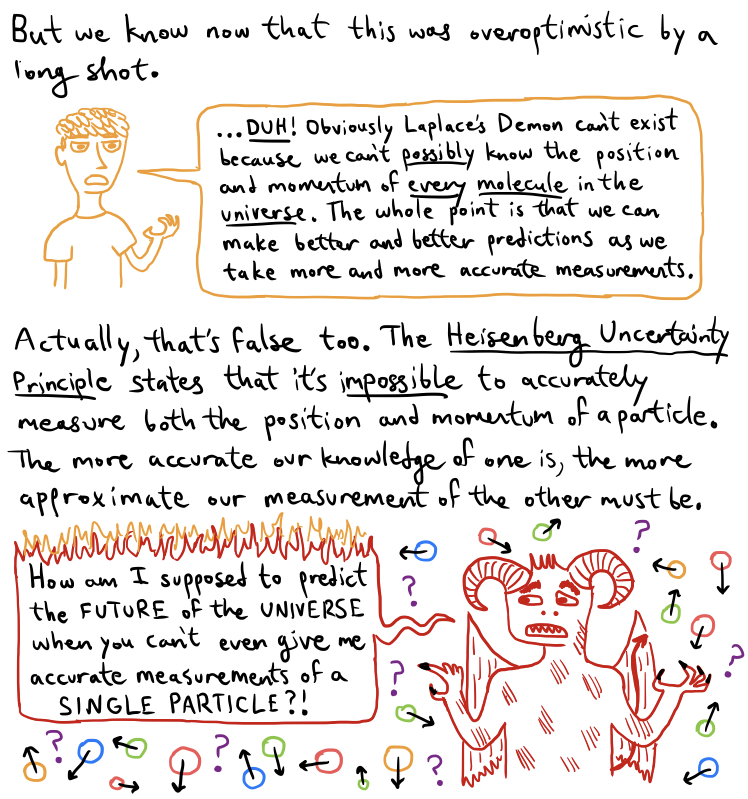 But we know now that this was overoptimistic by a
long shot.
...DUH! Obviously Laplace's Demon can't exist
because we can't possibly know the position
and momentum of every molecule in the
universe. The whole point is that we can
make better and better predictions as we
take more and more accurate measurements.
Actually, that's false too. The Heisenberg Uncertainty
Principle states that it's impossible to accurately
measure both the position and momentum of a particle.
The more accurate our knowledge of one is, the more
approximate our measurement of the other must be.
How am I supposed to predict
the FUTURE of the UNIVERSE
when you can't even give me
accurate measurements of a
SINGLE PARTICLE?!
?
?
?
?
?
?
?